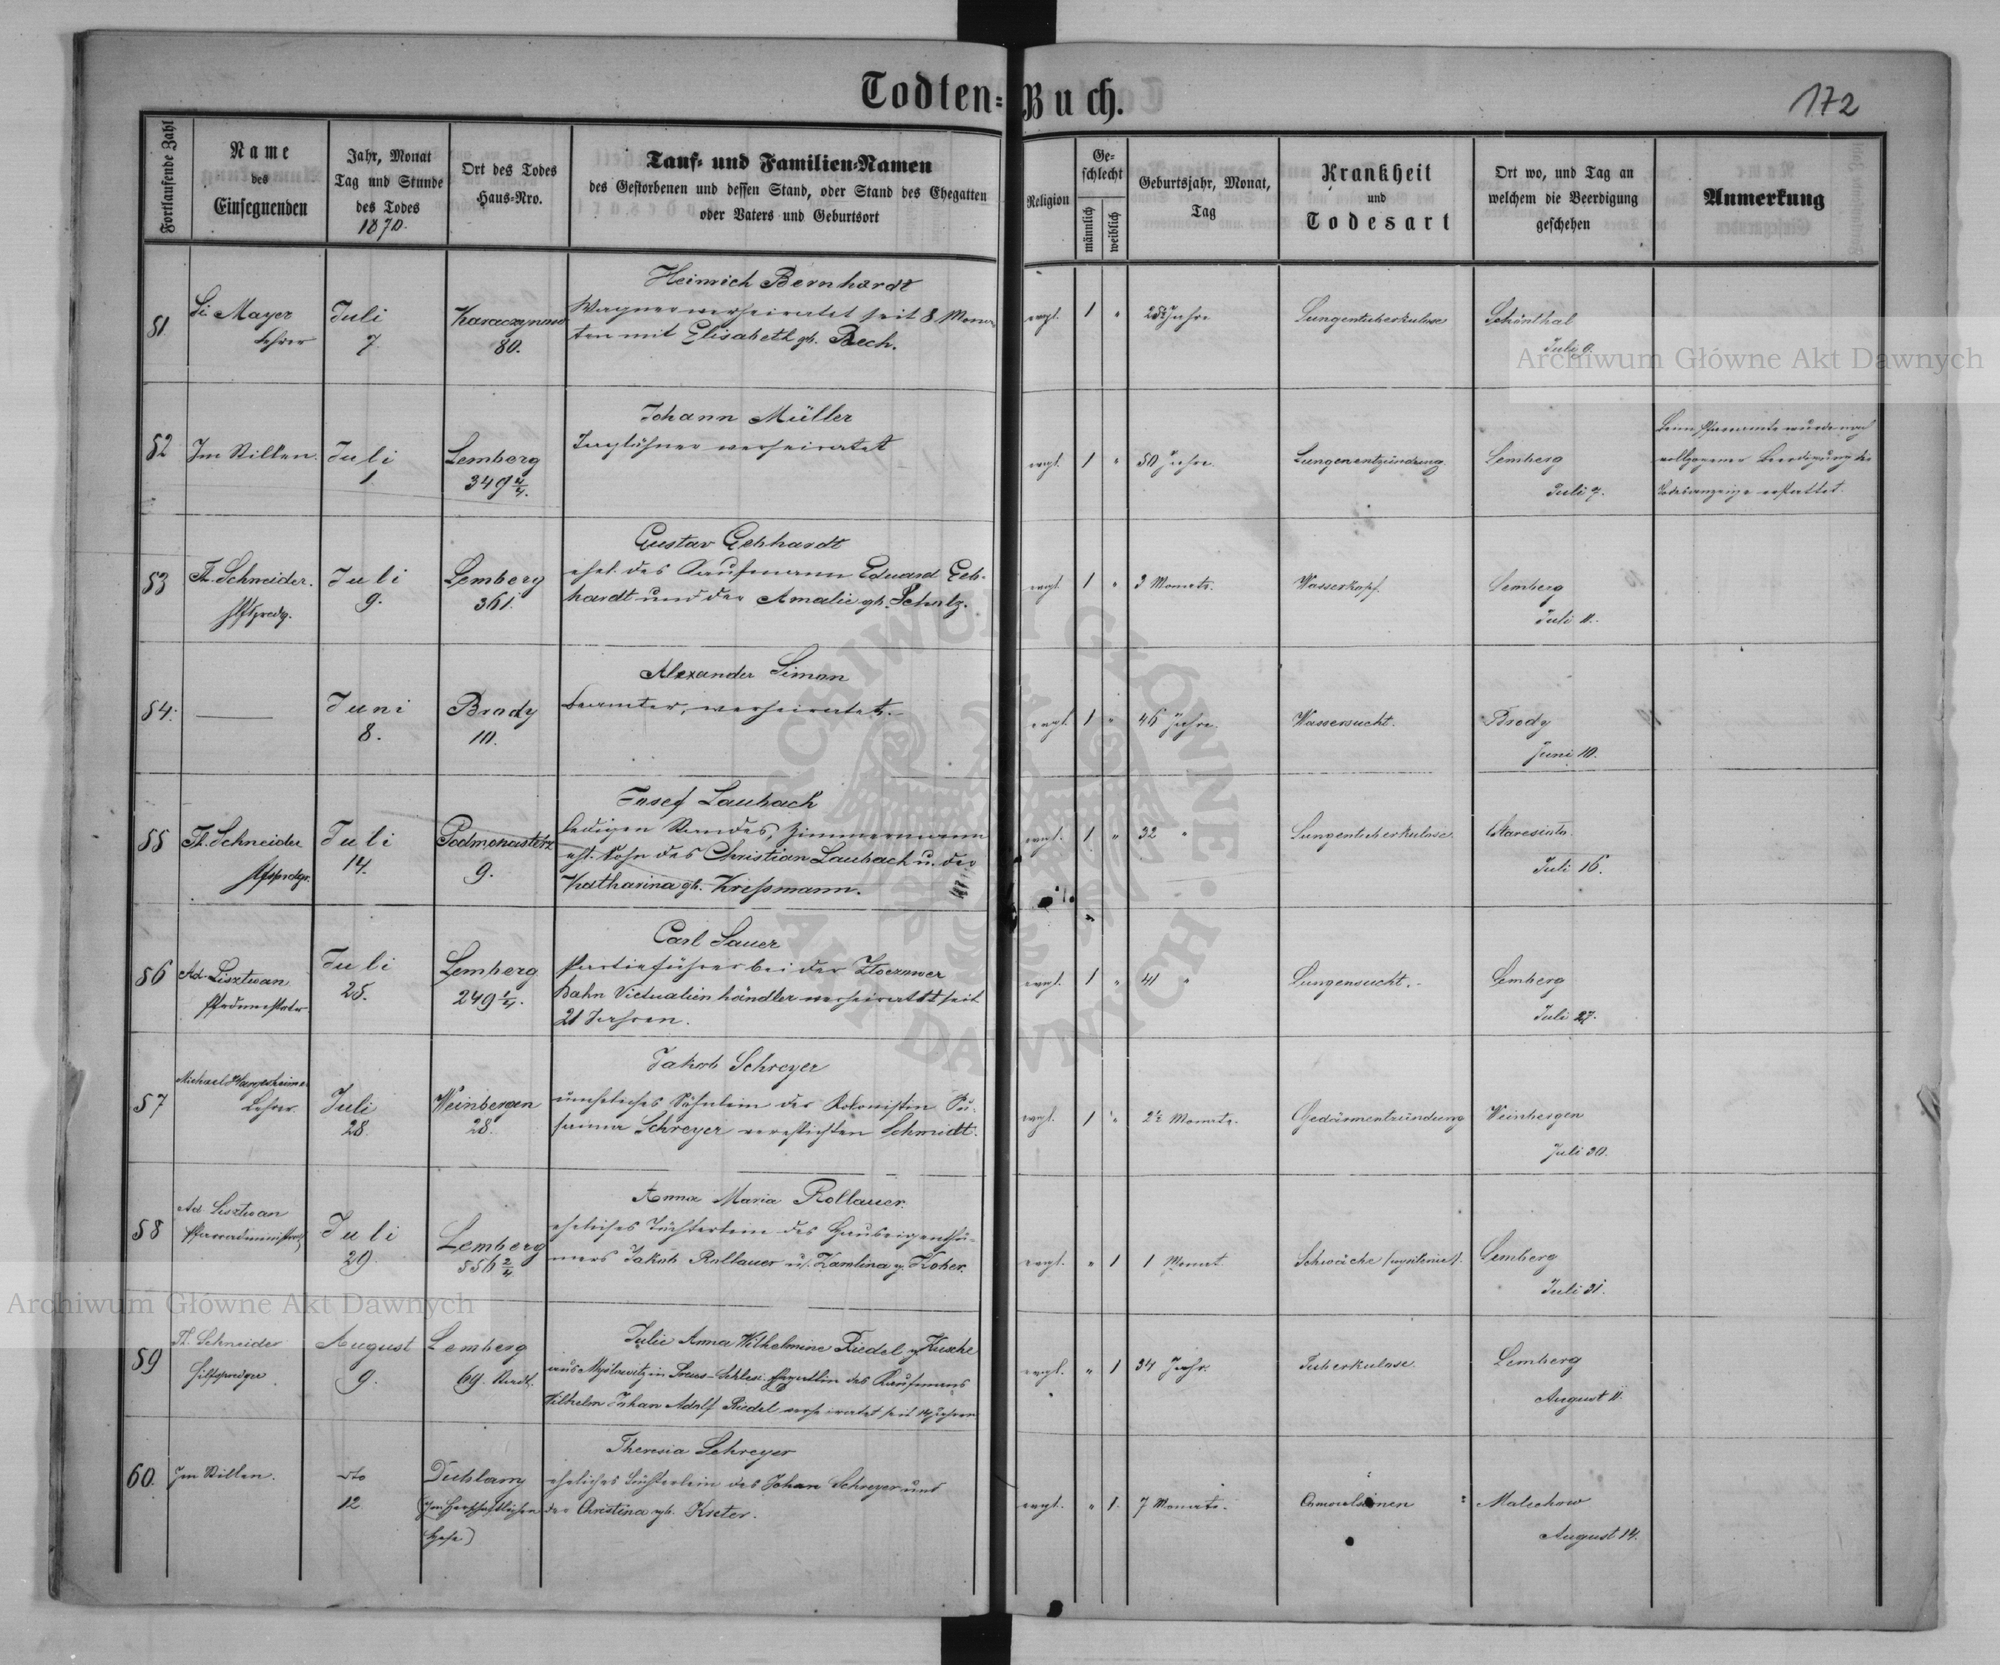 Todten-Buch.
172
Fortlaufende Zahl
Name
des
Einsegnenden
Jahr, Monat
Tag und Stunde
des Todes
1870.
Ort des Todes
Haus-Nro.
Tauf- und Familien-Namen
des Gestorbenen und dessen Stand, oder Stand des Ehegatten
oder Vaters und Geburtsort
Religion
Ge-
schlecht
männlich
weiblich
Geburtsjahr, Monat,
Tag
Krankheit
und
Todesart
Ort wo, und Tag an
welchem die Beerdigung
geschehen
Anmerkung
51
Mayer
Lehrer
Juli
7.
80.
Heinrich Bernhardt
Wagner verheiratet seit 8 Mona-
ten mit Elisabeth gb. Bech.
evgl. 1 "
Jahre
Lungentuberkulose
Schönthal
Juli 9.
52
Im Stillen.
Juli
1
Lemberg
349 4/4.
Johann Müller
Taglöhner verheiratet
evgl. 1 "
50 Jahre.
Lungenentzündung.
Lemberg
Juli
Beim Pfarramte wurde nach
vollzogener Beerdigung die
Todesanzeige erstattet.
53
Th. Schneider.
Hlfspredg.
Juli
9.
Lemberg
361.
Gustav Gebhardt
ehel. des Kaufmann Eduard Geb-
hardt und der Amalie gb. Scholz.
evgl. 1 "
3 Monate.
Wasserkopf.
Lemberg
Juli 11.
54.
Juni
8.
Brody
110.
Alexander Simon
Beamter, verheiratet.
evgl. 1 "
46 Jahre.
Wassersucht.
Brody
Juni 10.
55
Th. Schneider
Juli
14.
Podmonasterz
9.
Josef Laubach
ledigen Standes, Zimmermann
ehl. Sohn des Christian Laubach u. der
Katharina gb. Krießmann.
evgl. 1 "
32 "
Lungentuberkulose.
Juli 16.
56
Ad. Lisztwan
Juli
25.
Lemberg
249 1/4.
Carl Sauer
Partieführer bei der Złoczower
Bahn Victualienhändler verheiratet seit
21 Jahren.
evgl. 1 "
41 "
Lungensucht.
Lemberg
Juli 27.
57
Michael
Lehrer.
Juli
28.
Weinbergen
28.
Jakob Schreyer
uneheliches Söhnlein der Kolonistin
Schreyer verehlichten Schmidt.
evgl. 1 "
2½ Monate.
Gedärmentzündung
Weinbergen
Juli 30.
58
Ad. Lisztwan
Juli
29.
Lemberg
556 2/4
Anna Maria Rollauer.
eheliches Töchterlein des Hauseigenthü-
mers Jakob Rollauer u. Karolina g. Koher.
evgl. " 1
1 Monat
Schwäche
Lemberg
Juli 31.
59
Th. Schneider
Hilfsprediger
August
9.
Lemberg
69. Stadt.
Julie Anna Wilhelmine Riedel g. Kusche
aus Myslowitz in Preus-Schles. Ehegattin des Kaufmans
Wilhelm Johan Adolf Riedel verheiratet seit 14 Jahren
evgl. " 1
34 Jahr.
Tuberkulose
Lemberg
August 11.
60.
Im Stillen.
dto
12.
Dublany
(Im herschaftlichen
Hofe)
Theresia Schreyer
eheliches Töchterlein des Johan Schreyer und
der Christina gb. Kreter.
evgl. " 1.
7 Monate.
Malechow
August 14.
Archiwum Główne Akt Dawnych
Archiwum Główne Akt Dawnych
ARCHIWUM GŁÓWNE AKT DAWNYCH